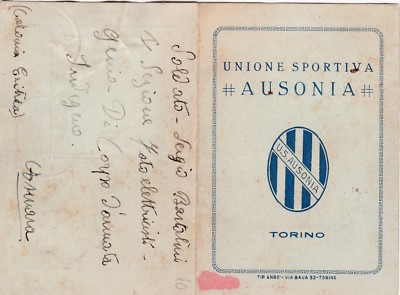 Soldato - Sergio Bertolini
1ª Sezione Fotoelettricisti -
Genio - Di Corpo d'armata
Indigeno.
(Asmara
(Colonia Eritrea)
10
UNIONE SPORTIVA
AUSONIA
U.S. AUSONIA
TORINO
VIA BAVA 32 - TORINO